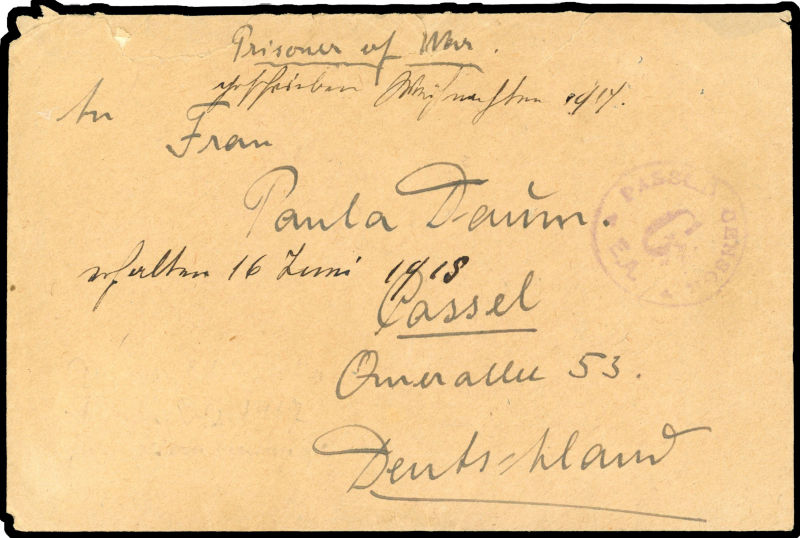 Prisoner of War.
geschrieben Weihnachten 1917.
An
Frau
Paula Daum.
PASSED CENSOR
erhalten 16 Juni 1918
Cassel
53.
Deutschland